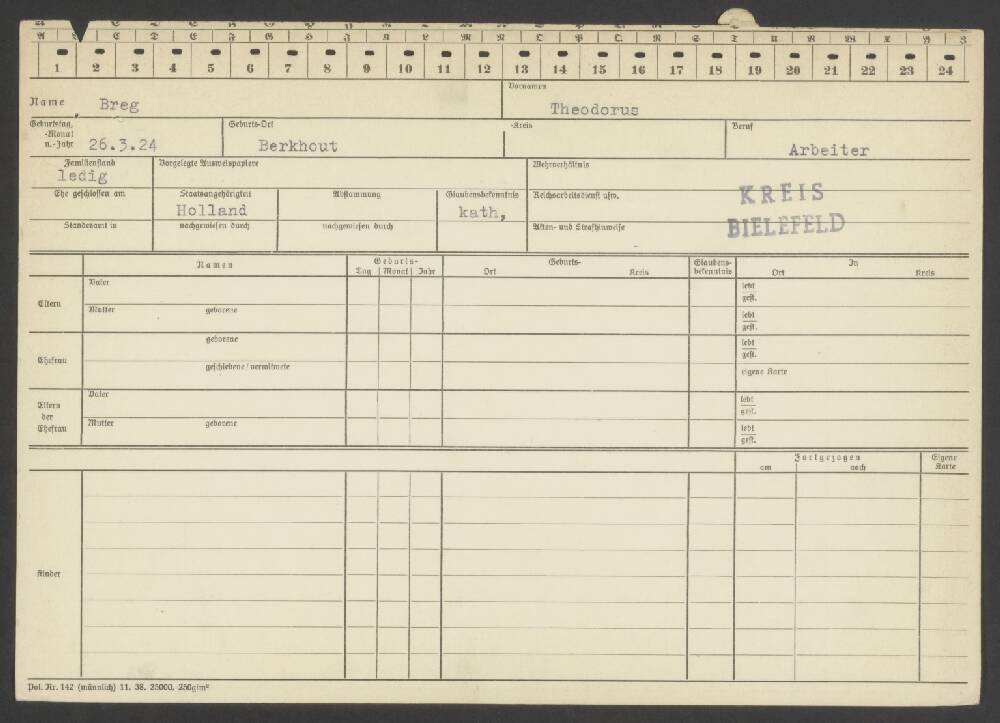 1 2 3 4 5 6 7 8 9 10 11 12 13 14 15 16 17 18 19 20 21 22 23 24
Name, Breg
Vornamen
Theodorus
Geburtstag,
-Monat
u.-Jahr 26.3.24
Geburts-Ort
Berkhout
-Kreis
Beruf
Arbeiter
Familienstand
ledig
Vorgelegte Ausweispapiere
Wehrverhältnis
Ehe geschlossen am
Staatsangehörigkeit
Holland
Abstammung
Glaubensbekenntnis
kath,
Reichsarbeitsdienst usw.
KREIS
BIELEFELD
Standesamt in
nachgewiesen durch
nachgewiesen durch
Akten- und Strafhinweise
Namen
Geburts-
Tag Monat Jahr
Geburts-
Ort Kreis
Glaubens-
bekenntnis
In
Ort Kreis
Eltern
Vater
lebt
gest.
Mutter geborene
lebt
gest.
Ehefrau
geborene
lebt
gest.
geschiedene/verwitwete
eigene Karte
Eltern
der
Ehefrau
Vater
lebt
gest.
Mutter geborene
lebt
gest.
Fortgezogen
am nach
Eigene
Karte
Kinder
Pol. Nr. 142 (männlich) 11. 38. 25000. 250g/m²